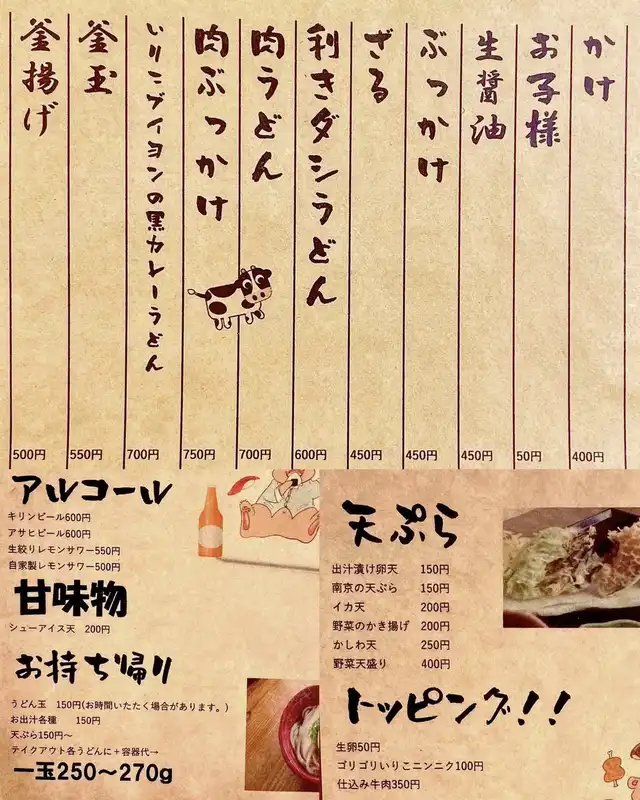 かけ
400円
お子様
50円
生醤油
450円
ぶっかけ
450円
ざる
450円
利きダシうどん
600円
肉うどん
700円
肉ぶっかけ
750円
いりこブイヨンの黒カレーうどん
700円
釜玉
550円
釜揚げ
500円
アルコール
キリンビール600円
アサヒビール600円
生絞りレモンサワー550円
自家製レモンサワー500円
甘味物
シューアイス天 200円
お持ち帰り
うどん玉 150円(お時間いたたく場合があります。)
お出汁各種 150円
天ぷら150円〜
テイクアウト各うどんに+容器代→
一玉250〜270g
天ぷら
出汁漬け卵天 150円
南京の天ぷら 150円
イカ天 200円
野菜のかき揚げ 200円
かしわ天 250円
野菜天盛り 400円
トッピング!!
生卵50円
ゴリゴリいりこニンニク100円
仕込み牛肉350円